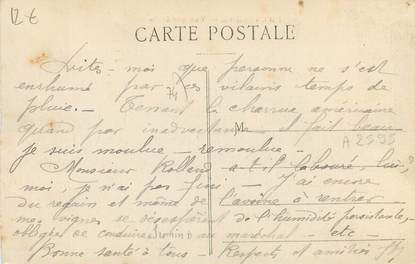 12 €
CARTE POSTALE
Dites-moi que personne ne s'est
enrhumé par ces vilains temps de
pluie. — Tenant la charrue américaine
quand par inadvertance il fait beau
M
74
A 2595
je suis moulue — remoulue. —
Monsieur Rolland a-t-il labouré, lui ?
moi, je n'ai pas fini — j'ai encore
du regain et même de l'avoine à rentrer —
mes vignes se désespèrent de l'humidité persistante, —
obligée de conduire au maréchal — etc —
Bonne santé à tous — Respects et amitiés